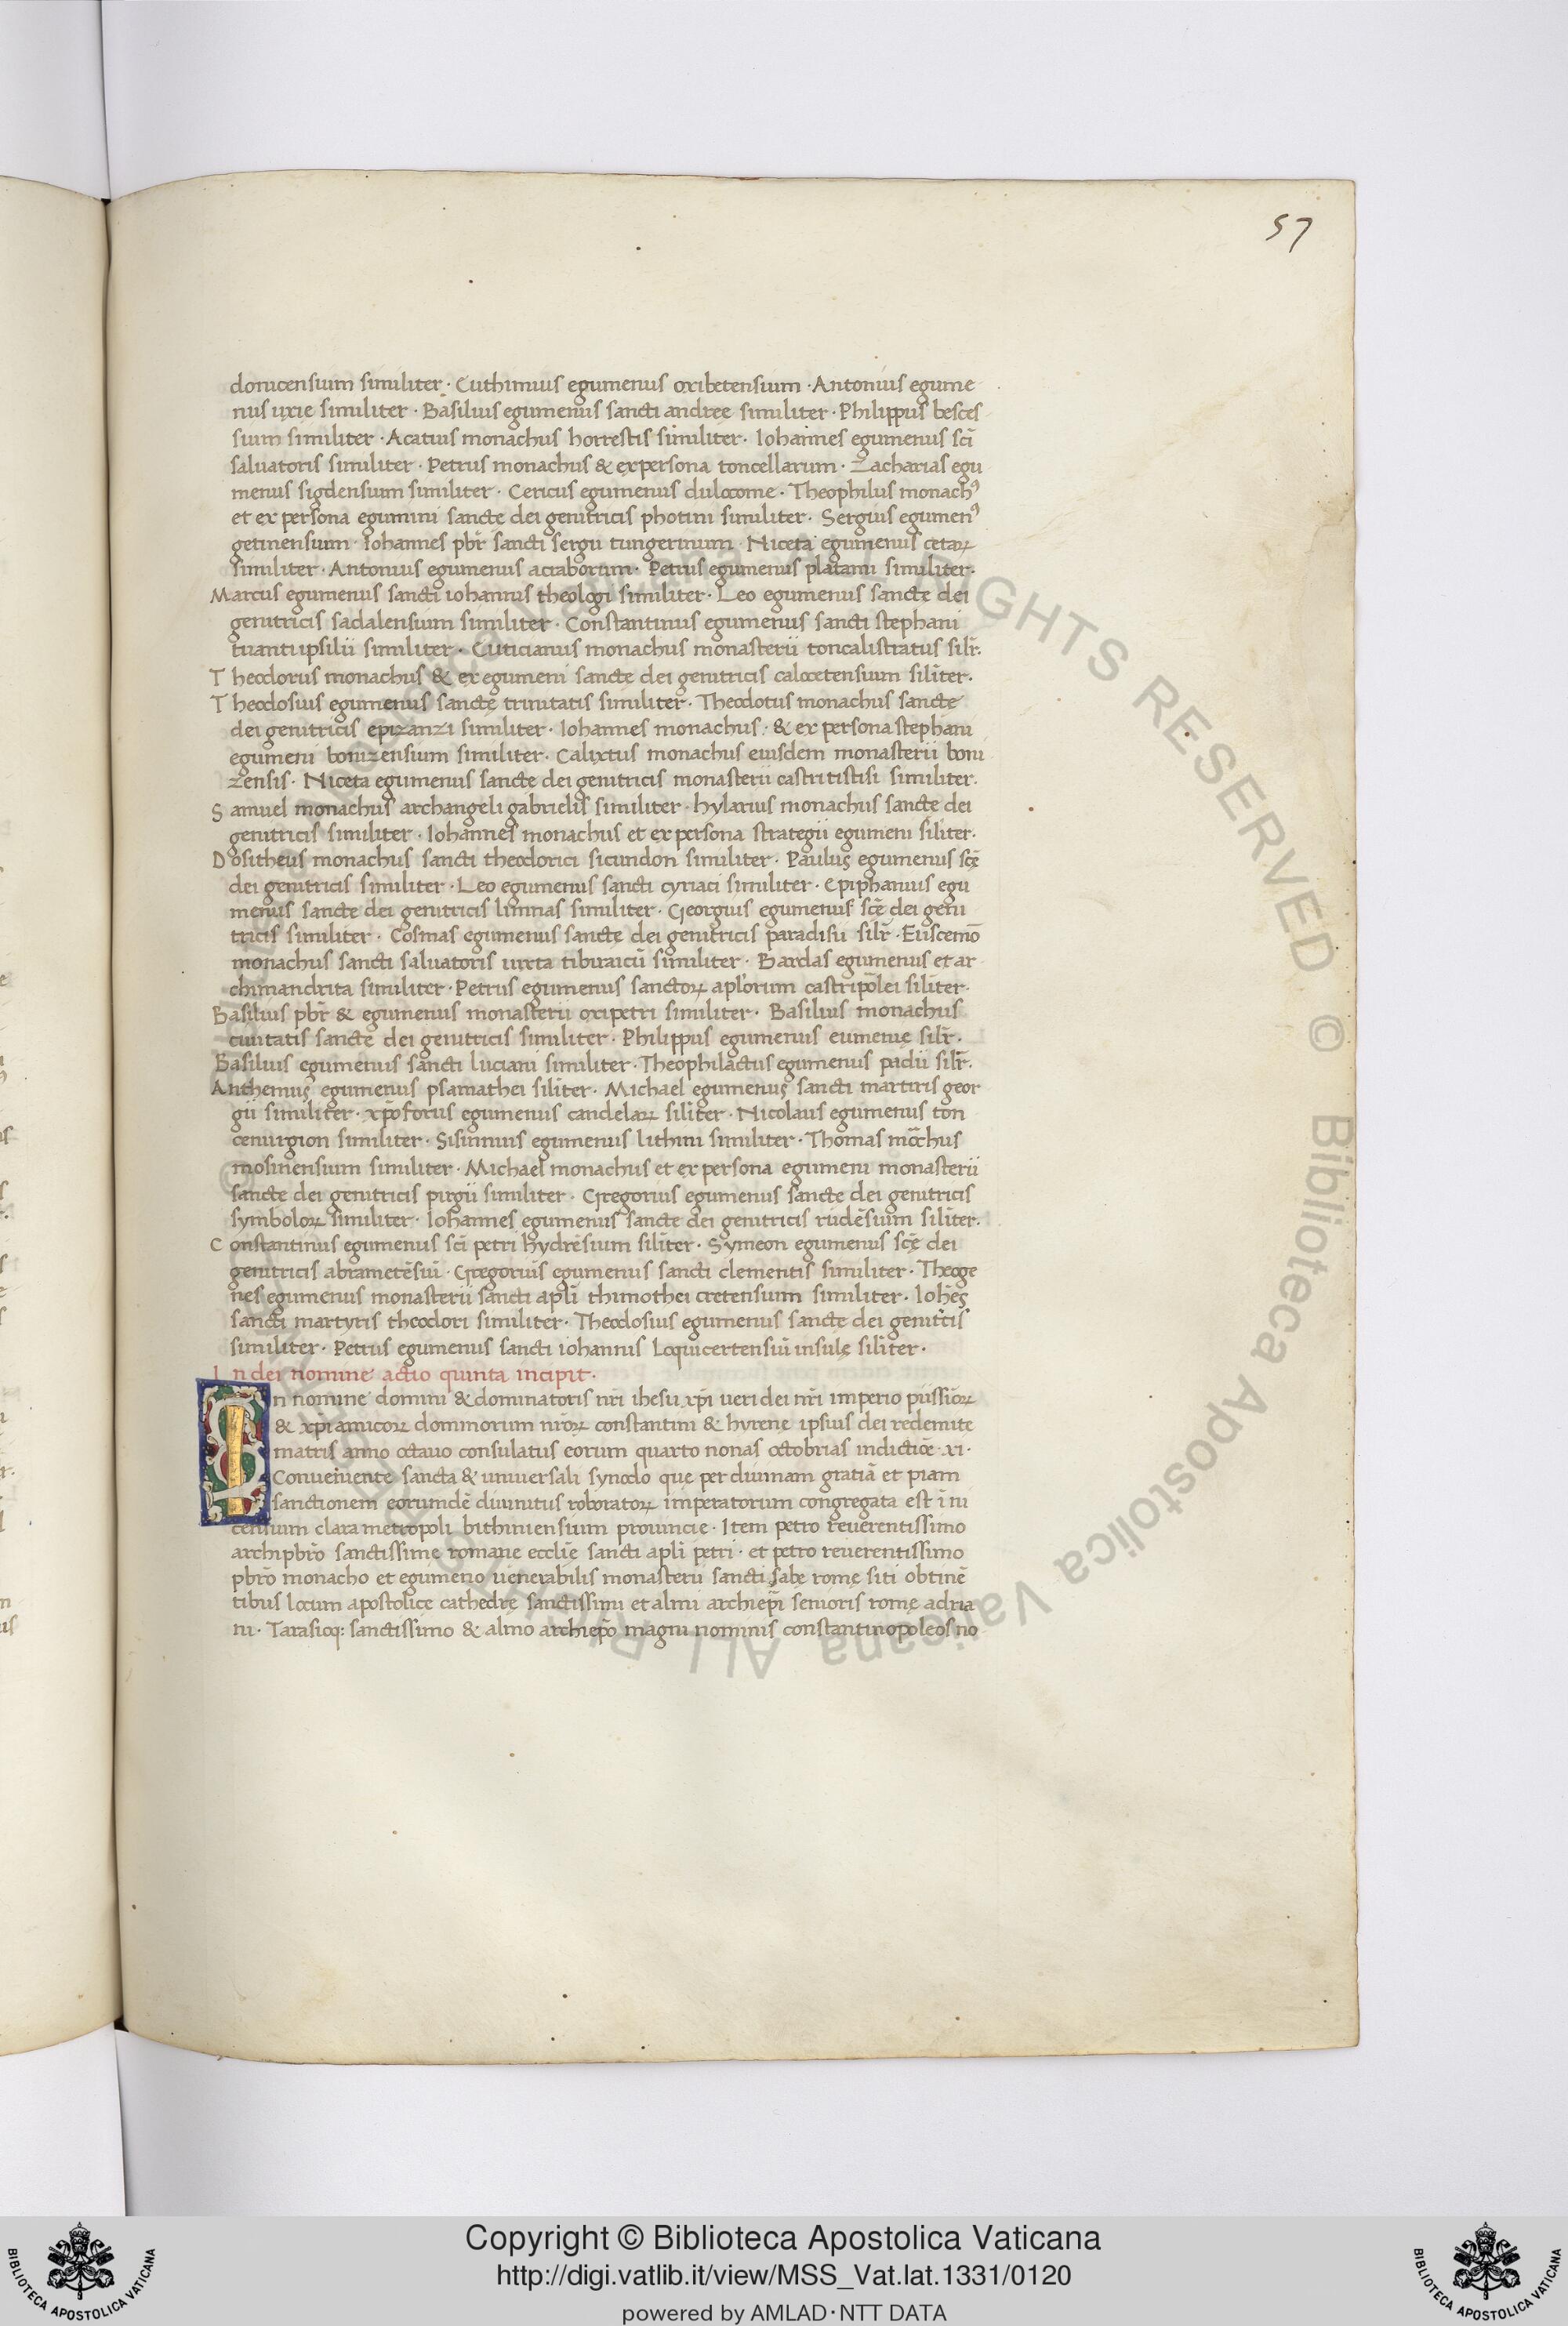 57
donicensium similiter · Euthimius egumenus oxibetensium · Antonius egume
nus uxie similiter · Basilius egumenus sancti andreę similiter · Philippus besces
sium similiter · Acatius monachus horrestis similiter · Iohannes egumenus sc̃i
saluatoris similiter · Petrus monachus & ex persona toncellarum · Zacharias egu
menus sigdensium similiter · Cericus egumenus dulocome · Theophilus monachꝰ
et ex persona egumini sancte dei genitricis photini similiter · Sergius egumenꝰ
getinensium · Iohannes pbr̃ sancti sergii tungerinum · Niceta egumenus cetaꝝ
similiter · Antonius egumenus acraborum · Petrus egumenus platani similiter ·
Marcus egumenus sancti iohannis theologi similiter · Leo egumenus sancte dei
genitricis sadalensium similiter · Constantinus egumenus sancti stephani
tuantipsilii similiter · Cuticianus monachus monasterii toncalistratus silr̃ ·
Theodorus monachus & ex egumeni sancte dei genitricis calocetensium silĩter ·
Theodosius egumenus sancte trinitatis similiter · Theodotus monachus sancte
dei genitricis epizanzi similiter · Iohannes monachus · & ex persona stephani
egumeni bonizensium similiter · Calixtus monachus eiusdem monasterii boni
zensis · Niceta egumenus sancte dei genitricis monasterii castri tistisi similiter ·
Samuel monachus archangeli gabrielis similiter · hylarius monachus sancte dei
genitricis similiter · Iohannes monachus et ex persona strategii egumeni silĩter ·
Dositheus monachus sancti theodorici sicundon similiter · Paulus egumenus scę̃
dei genitricis similiter · Leo egumenus sancti cyriaci similiter · Epiphanius egu
menus sancte dei genitricis limnas similiter · Georgius egumenus scę̃ dei geni
tricis similiter · Cosmas egumenus sancte dei genitricis paradisii silr̃ · Euscemõ
monachus sancti saluatoris iuxta tibiraicũ similiter · Bardas egumenus et ar
chimandrita similiter · Petrus egumenus sanctoꝝ apl'orum castripolei silĩter ·
Basilius pbr̃ & egumenus monasterii oxipetri similiter · Basilius monachus
ciuitatis sancte dei genitricis similiter · Philippus egumenus eumenie silr̃ ·
Basilius egumenus sancti luciani similiter · Theophilactus egumenus padii silr̃ ·
Anthemius egumenus psamathei silĩter · Michael egumenus sancti martiris geor
gii similiter · xp̃oforus egumenus candelaꝝ silĩter · Nicolaus egumenus ton
cenurgion similiter · Sisinnius egumenus lithini similiter · Thomas mõchus
mosinensium similiter · Michael monachus et ex persona egumeni monasterii
sancte dei genitricis pirgii similiter · Gregorius egumenus sancte dei genitricis
symboloꝝ similiter · Iohannes egumenus sancte dei genitricis rudẽsium silĩter ·
Constantinus egumenus sc̃i petri hydrẽsium silĩter · Symeon egumenus scę̃ dei
genitricis abrametẽsiũ · Gregorius egumenus sancti clementis similiter · Theoge
nes egumenus monasterii sancti apl̃i thimothei cretensium similiter · Ioh̃es
sancti martyris theodori similiter · Theodosius egumenus sancte dei genit̃cis
similiter · Petrus egumenus sancti iohannis Loquicertensiũ insulę silĩter ·
In dei nomine actio quinta incipit ·
In nomine domini & dominatoris nr̃i ihesu xp̃i ueri dei nr̃i imperio piissioꝝ
& xpi amicoꝝ dominorum nr̃oꝝ constantini & hyrene ipsius dei redemite
matris anno octauo consulatus eorum quarto nonas octobrias indictiõe xi ·
Conueniente sancta & uniuersali synodo que per diuinam gratiã et piam
sanctionem eorumdẽ diuinitus roboratoꝝ imperatorum congregata est ĩ ni
censium clara metropoli bithiniensium prouincie · Item petro reuerentissimo
archipbr̃o sanctissime romane eccl̃ie sancti apl̃i petri · et petro reuerentissimo
pbr̃o monacho et egumeno uenerabilis monasterii sancti sabe rome siti obtinẽ
tibus locum apostolice cathedrę sanctissimi et almi archiep̃i senioris rome adria
ni · Tarasioq: sanctissimo & almo archiep̃o magni nominis constantinopoleos no
Copyright © Biblioteca Apostolica Vaticana
http://digi.vatlib.it/view/MSS_Vat.lat.1331/0120
powered by AMLAD·NTT DATA
BIBLIOTECA APOSTOLICA VATICANA
BIBLIOTECA APOSTOLICA VATICANA